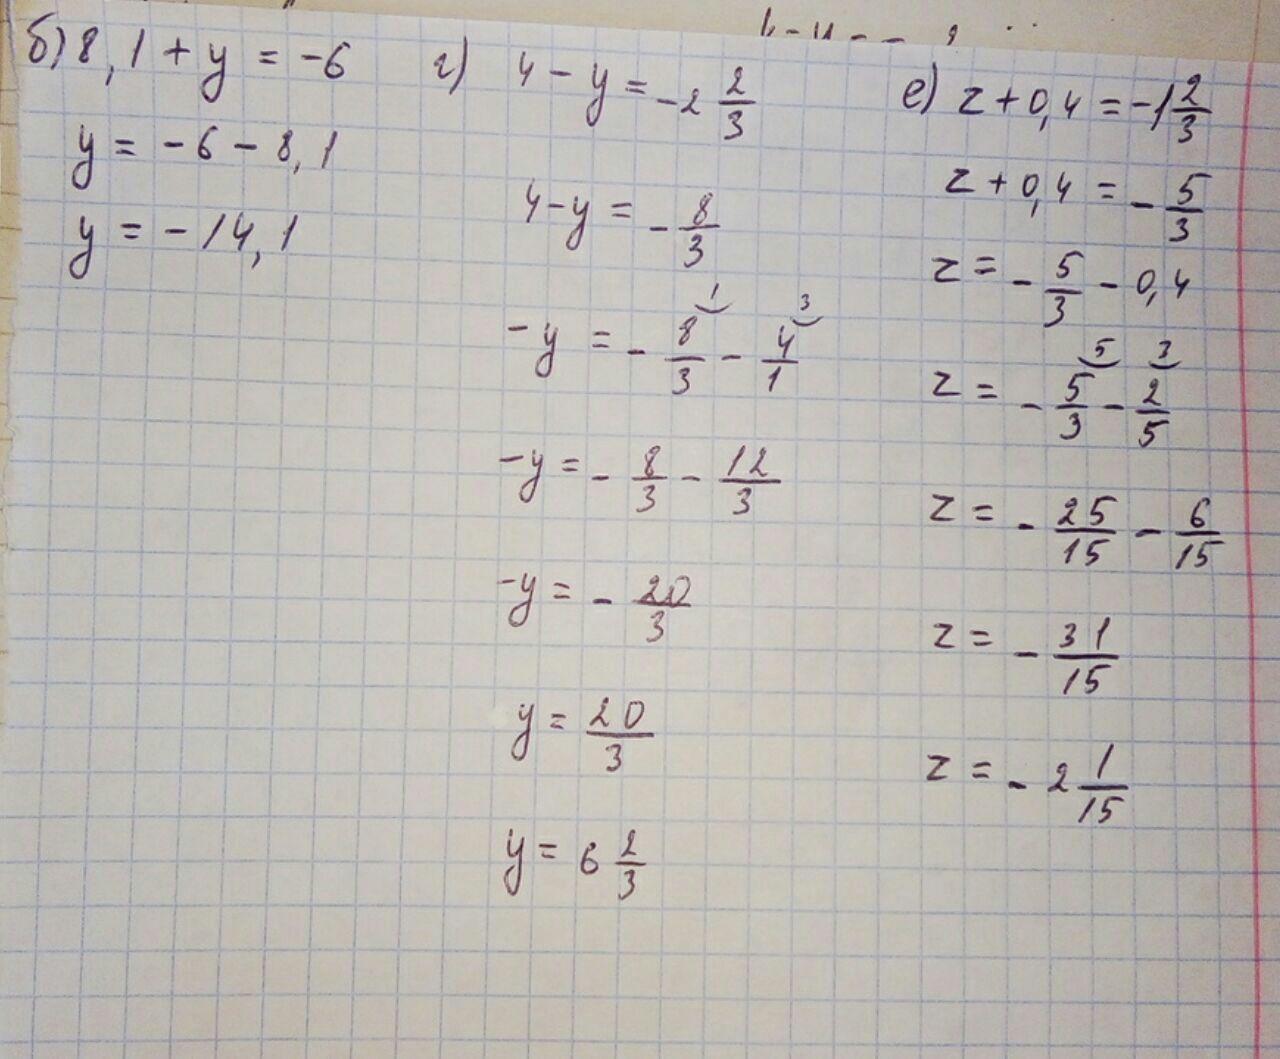 б) 8,1 + y = -6
y = -6 - 8,1
y = -14,1
г) 4 - y = -2 2/3
4 - y = - 8/3
-y = - 8/3 ⁽¹ - 4/1 ⁽³
-y = - 8/3 - 12/3
-y = - 20/3
y = 20/3
y = 6 2/3
е) z + 0,4 = -1 2/3
z + 0,4 = - 5/3
z = - 5/3 - 0,4
z = - 5/3 ⁽⁵ - 2/5 ⁽³
z = - 25/15 - 6/15
z = - 31/15
z = - 2 1/15